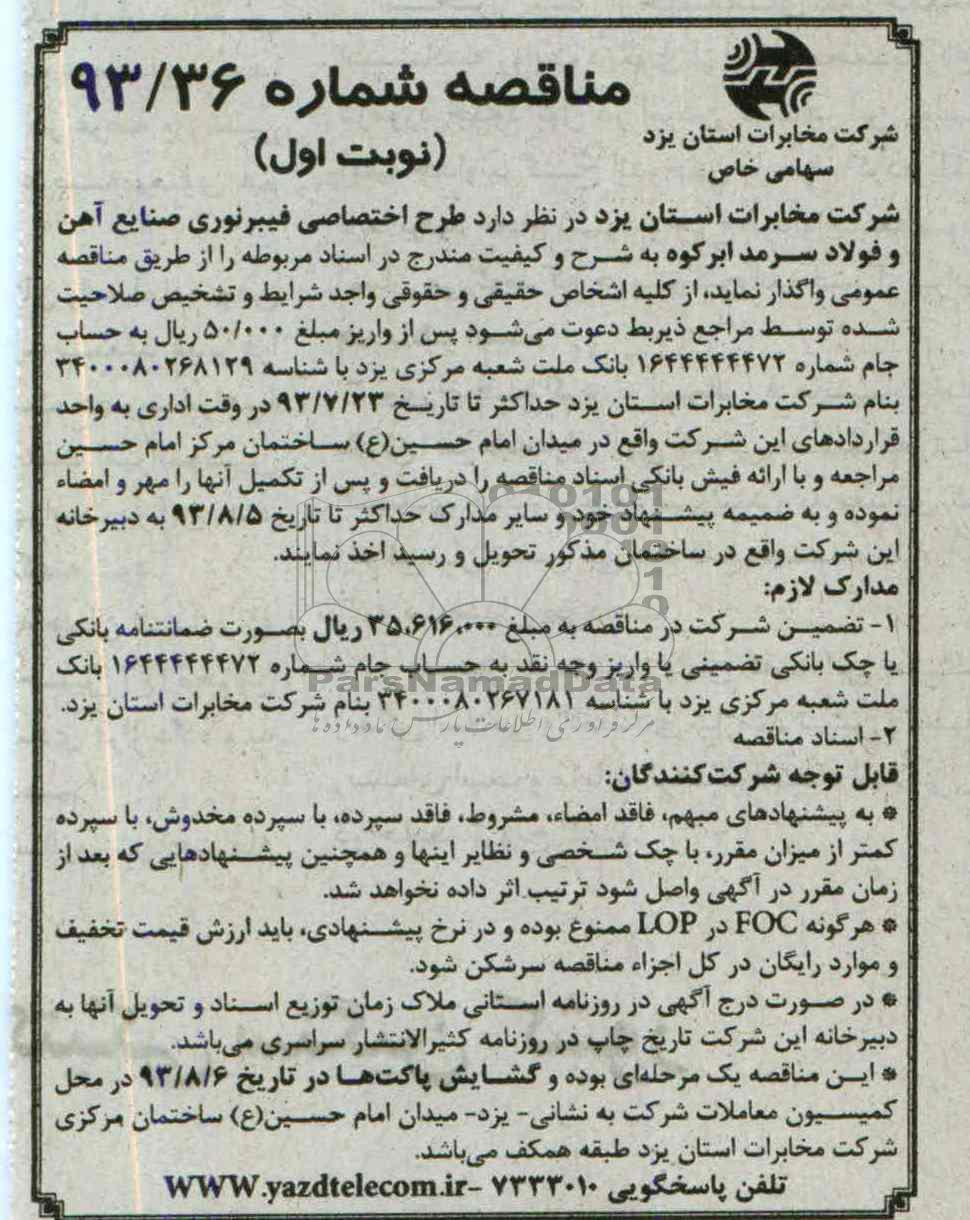 مناقصه شماره ۹۳/۳۶
(نوبت اول)
شرکت مخابرات استان یزد
سهامی خاص
شرکت مخابرات استان یزد در نظر دارد طرح اختصاصی فیبرنوری صنایع آهن
و فولاد سرمد ابرکوه به شرح و کیفیت مندرج در اسناد مربوطه را از طریق مناقصه
عمومی واگذار نماید، از کلیه اشخاص حقیقی و حقوقی واجد شرایط و تشخیص صلاحیت
شده توسط مراجع ذیربط دعوت می‌شود پس از واریز مبلغ ۵۰/۰۰۰ ریال به حساب
جام شماره ۱۶۴۴۴۴۴۴۷۲ بانک ملت شعبه مرکزی یزد با شناسه ۳۴۰۰۰۸۰۲۶۸۱۲۹
بنام شرکت مخابرات استان یزد حداکثر تا تاریخ ۹۳/۷/۲۳ در وقت اداری به واحد
قراردادهای این شرکت واقع در میدان امام حسین(ع) ساختمان مرکز امام حسین
مراجعه و با ارائه فیش بانکی اسناد مناقصه را دریافت و پس از تکمیل آنها را مهر و امضاء
نموده و به ضمیمه پیشنهاد خود و سایر مدارک حداکثر تا تاریخ ۹۳/۸/۵ به دبیرخانه
این شرکت واقع در ساختمان مذکور تحویل و رسید اخذ نمایند.
مدارک لازم:
۱- تضمین شرکت در مناقصه به مبلغ ۳۵،۶۱۶،۰۰۰ ریال بصورت ضمانتنامه بانکی
یا چک بانکی تضمینی یا واریز وجه نقد به حساب جام شماره ۱۶۴۴۴۴۴۴۷۲ بانک
ملت شعبه مرکزی یزد با شناسه ۳۴۰۰۰۸۰۲۶۷۱۸۱ بنام شرکت مخابرات استان یزد.
ParsNamadData
مرکز فرآوری اطلاعات پارس نماد داده ها
۲- اسناد مناقصه
قابل توجه شرکت‌کنندگان:
* به پیشنهادهای مبهم، فاقد امضاء، مشروط، فاقد سپرده، با سپرده مخدوش، با سپرده
کمتر از میزان مقرر، با چک شخصی و نظایر اینها و همچنین پیشنهادهایی که بعد از
زمان مقرر در آگهی واصل شود ترتیب اثر داده نخواهد شد.
* هرگونه FOC در LOP ممنوع بوده و در نرخ پیشنهادی، باید ارزش قیمت تخفیف
و موارد رایگان در کل اجزاء مناقصه سرشکن شود.
* در صورت درج آگهی در روزنامه استانی ملاک زمان توزیع اسناد و تحویل آنها به
دبیرخانه این شرکت تاریخ چاپ در روزنامه کثیرالانتشار سراسری می‌باشد.
* این مناقصه یک مرحله‌ای بوده و گشایش پاکت‌ها در تاریخ ۹۳/۸/۶ در محل
کمیسیون معاملات شرکت به نشانی- یزد- میدان امام حسین(ع) ساختمان مرکزی
شرکت مخابرات استان یزد طبقه همکف می‌باشد.
تلفن پاسخگویی ۷۳۳۳۰۱۰ -WWW.yazdtelecom.ir